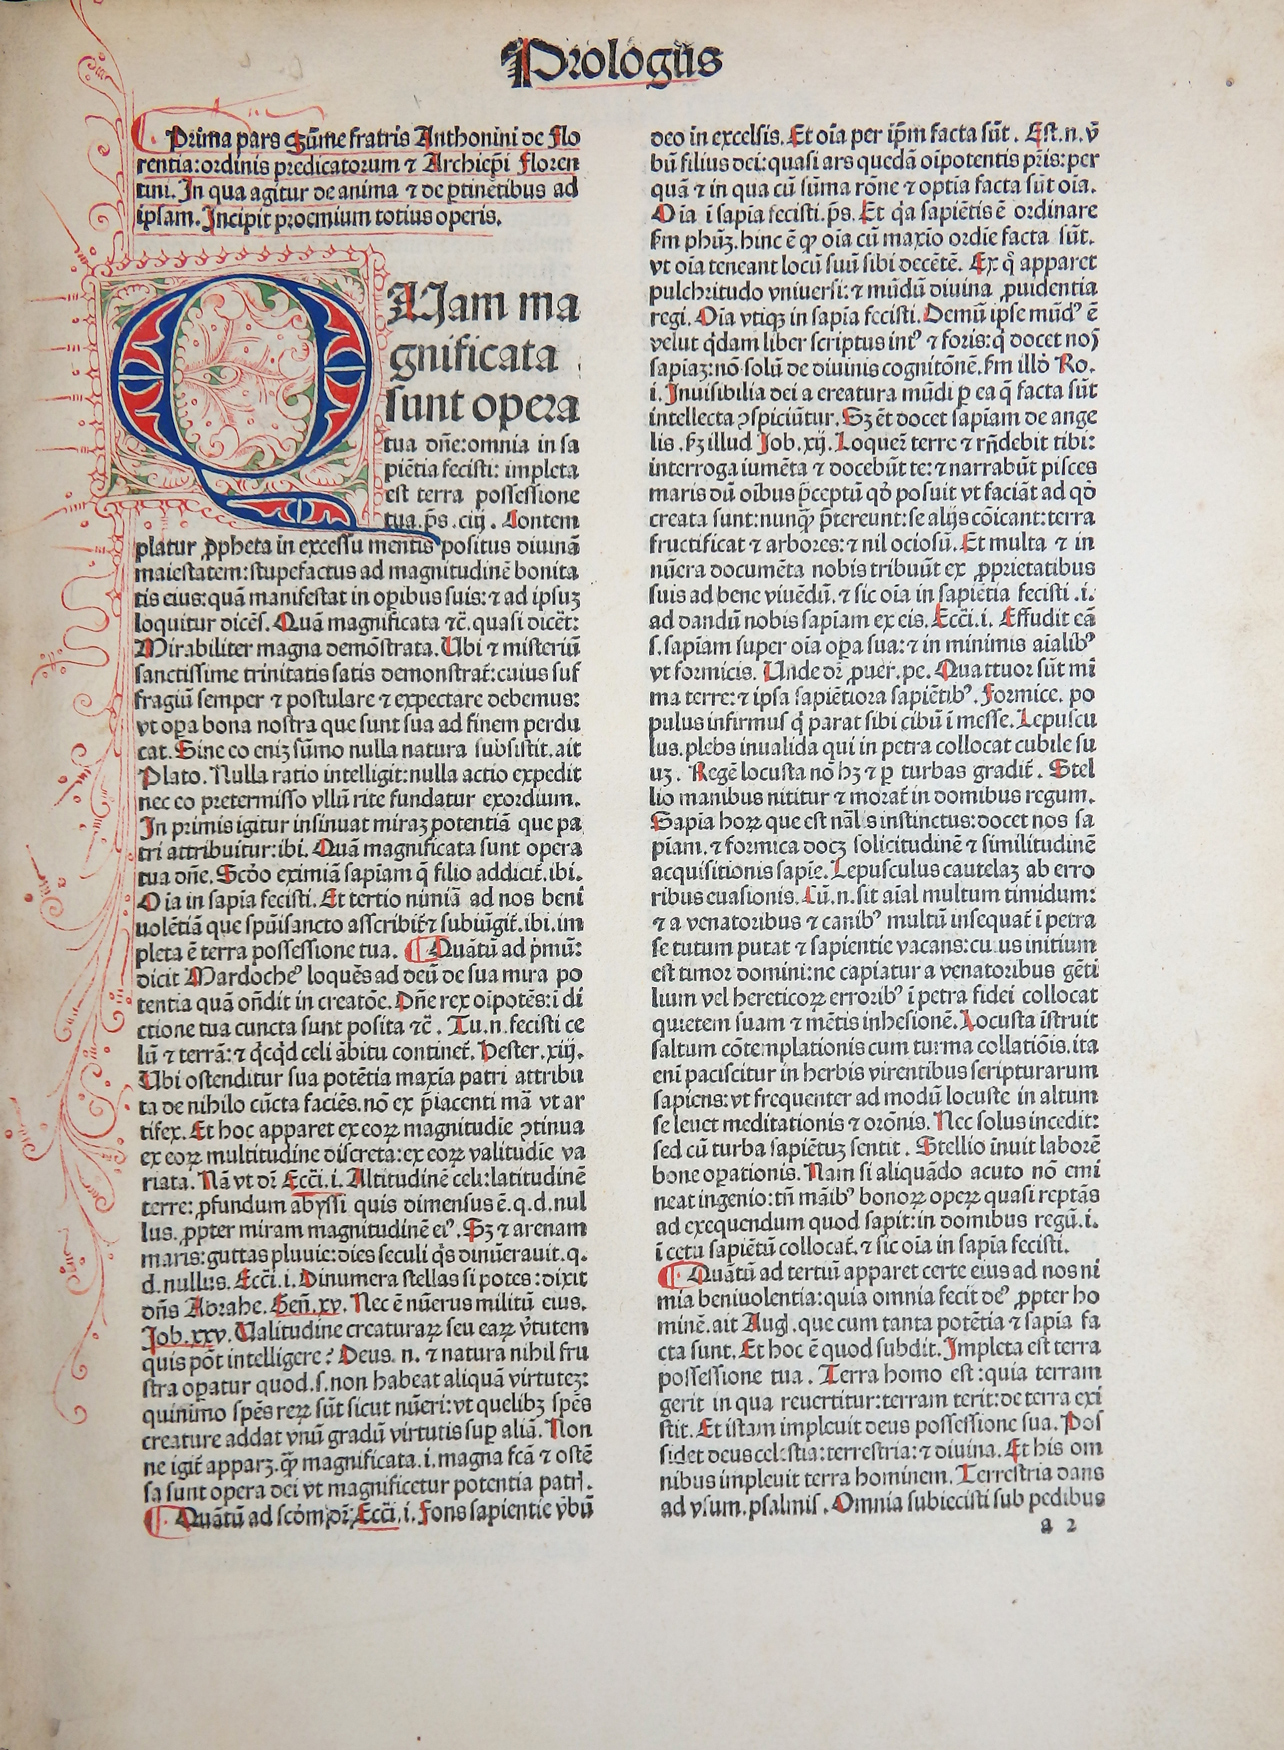 Prologus
Prima pars Sūme fratris Anthonini de Flo
rentia: ordinis predicatorum ⁊ Archiep̄i Floren
tini. In qua agitur de anima ⁊ de ꝑtinētibus ad
ipsam. Incipit proemium totius operis.
QUam ma
gnificata
sunt opera
tua dn̄e: omnia in sa
piētia fecisti: impleta
est terra possessione
tua. p̄s. ciij. Contem
platur ꝓpheta in excessu mentis positus diuinā
maiestatem: stupefactus ad magnitudinē bonita
tis eius: quā manifestat in oꝑibus suis: ⁊ ad ipsuꝫ
loquitur dicēs. Quā magnificata ⁊c̄. quasi dicēt:
Mirabiliter magna demōstrata. Ubi ⁊ misteriū
sanctissime trinitatis satis demonstrat̄: cuius suf
fragiū semper ⁊ postulare ⁊ expectare debemus:
vt oꝑa bona nostra que sunt sua ad finem perdu
cat. Sine eo eniꝫ sūmo nulla natura subsistit. ait
Plato. Nulla ratio intelligit: nulla actio expedit
nec eo pretermisso vllū rite fundatur exordium.
In primis igitur insinuat miraꝫ potentiā que pa
tri attribuitur: ibi. Quā magnificata sunt opera
tua dn̄e. Scd̄o eximiā sapiam q̄ filio addicit̄. ibi.
Oīa in sapīa fecisti. Et tertio nimiā ad nos beni
uolētiā que spūisancto asscribit̄ ⁊ subiūgit̄. ibi. im
pleta ē terra possessione tua. ¶ Quātū ad p̄mū:
dicit Mardocheꝰ loquēs ad deū de sua mira po
tentia quā oñdit in creatōe. Dn̄e rex oīpotēs: ī di
ctione tua cuncta sunt posita ⁊c̄. Tu. n. fecisti ce
lū ⁊ terrā: ⁊ q̇cq̇d celi ābitu continet̄. Hester. xiij.
Ubi ostenditur sua potētia maxīa patri attribu
ta de nihilo cūcta faciēs. nō ex p̄iacenti mā vt ar
tifex. Et hoc apparet ex eoꝝ magnitudīe ꝯtinua
ex eoꝝ multitudine discreta: ex eoꝝ valitudīe va
riata. Nā vt dī Ecc̄i. i. Altitudinē celi: latitudinē
terre: ꝓfundum abyssi quis dimensus ē. q. d. nul
lus. ꝓpter miram magnitudinē eiꝰ. Sꝫ ⁊ arenam
maris: guttas pluuie: dies seculi q̇s dinūerauit. q.
d. nullus. Ecc̄i. i. Dinumera stellas si potes: dixit
dn̄s Abrahe. Gen̄. xv. Nec ē nūerus militū eius.
Job. xxv. Ualitudine creaturaꝝ seu eaꝝ v̄tutem
quis pōt intelligere? Deus. n. ⁊ natura nihil fru
stra oꝑatur quod. s. non habeat aliquā virtuteꝫ:
quinimo spēs reꝝ sūt sicut nūeri: vt quelibꝫ spēs
creature addat vnū gradū virtutis suꝑ aliā. Non
ne igit̄ apparꝫ. ꝙ magnificata. i. magna fcā ⁊ ostē
sa sunt opera dei vt magnificetur potentia patri.
¶ Quātū ad scd̄m dr̄. Ecc̄i. i. Fons sapientie v̄bū
deo in excelsis. Et oīa per ip̄m facta sūt. Est. n. v̄
bū filius dei: quasi ars quedā oīpotentis pr̄is: per
quā ⁊ in qua cū sūma rōne ⁊ optīa facta sūt oīa.
Oīa ī sapīa fecisti. p̄s. Et q̇a sapiētis ē ordinare
ẜm ph̄ūꝫ. hinc ē ꝙ oīa cū maxīo ordīe facta sūt.
vt oīa teneant locū suū sibi decētē. Ex q̊ apparet
pulchritudo vniuersi: ⁊ mūdū diuina ꝓuidentia
regi. Oīa vtiqꝫ in sapīa fecisti. Demū ipse mūdꝰ ē
velut q̇dam liber scriptus intꝰ ⁊ foris: q̇ docet nos
sapīaꝫ: nō solū de diuinis cognitōnē. ẜm illd̄ Ro.
i. Inuisibilia dei a creatura mūdi ꝑ ea q̄ facta sūt
intellecta ꝯspiciūtur. Sꝫ ēt docet sapīam de ange
lis. ẜꝫ illud Job. xij. Loquer̄ terre ⁊ rn̄debit tibi:
interroga iumēta ⁊ docebūt te: ⁊ narrabūt pisces
maris dū oībus p̄ceptū qd̄ posuit vt faciāt ad qd̄
creata sunt: nunqꝫ p̄tereunt: se alijs cōīcant: terra
fructificat ⁊ arbores: ⁊ nil ociosū. Et multa ⁊ in
nūera documēta nobis tribuūt ex ꝓprietatibus
suis ad bene viuēdū. ⁊ sic oīa in sapiētia fecisti. i.
ad dandū nobis sapīam ex eis. Ecc̄i. i. Effudit eā
s. sapīam super oīa oꝑa sua: ⁊ in minimis aīalibꝰ
vt formicis. Unde dr̄. ꝓuer. pe. Quattuor sūt mī
ma terre: ⁊ ipsa sapiētiora sapiētibꝰ. Formice. po
pulus infirmus q̇ parat sibi cibū ī messe. Lepuscu
lus. plebs inualida qui in petra collocat cubile su
uꝫ. Regē locusta nō hꝫ ⁊ ꝑ turbas gradit̄. Stel
lio manibus nititur ⁊ morat̄ in domibus regum.
Sapīa hoꝝ que est nāl̄is instinctus: docet nos sa
pīam. ⁊ formica docꝫ solicitudinē ⁊ similitudinē
acquisitionis sapīe. Lepusculus cautelaꝫ ab erro
ribus euasionis. Cū. n. sit aīal multum timidum:
⁊ a venatoribus ⁊ canibꝰ multū insequat̄ ī petra
se tutum putat ⁊ sapientie vacans: cuius initium
est timor domini: ne capiatur a venatoribus gēti
lium vel hereticoꝝ erroribꝰ ī petra fidei collocat
quietem suam ⁊ mētis inhesionē. Locusta īstruit
saltum cōtemplationis cum turma collatiōis. ita
enī paciscitur in herbis virentibus scripturarum
sapiens: vt frequenter ad modū locuste in altum
se leuet meditationis ⁊ orōnis. Nec solus incedit:
sed cū turba sapiētuꝫ sentit. Stellio īnuit laborē
bone oꝑationis. Nam si aliquādo acuto nō emi
neat ingenio: tn̄ māibꝰ bonoꝝ opeꝝ quasi reptās
ad exequendum quod sapit: in domibus regū. i.
ī cetu sapiētū collocat̄. ⁊ sic oīa in sapīa fecisti.
¶ Quātū ad tertiū apparet certe eius ad nos ni
mia beniuolentia: quia omnia fecit deꝰ ꝓpter ho
minē. ait Auḡ. que cum tanta potētia ⁊ sapīa fa
cta sunt. Et hoc ē quod subdit. Impleta est terra
possessione tua. Terra homo est: quia terram
gerit in qua reuertitur: terram terit: de terra exi
stit. Et istam impleuit deus possessione sua. Pos
sidet deus celestia: terrestria: ⁊ diuina. Et his om
nibus impleuit terra hominem. Terrestria dans
ad vsum. psalmis. Omnia subiecisti sub pedibus
a 2